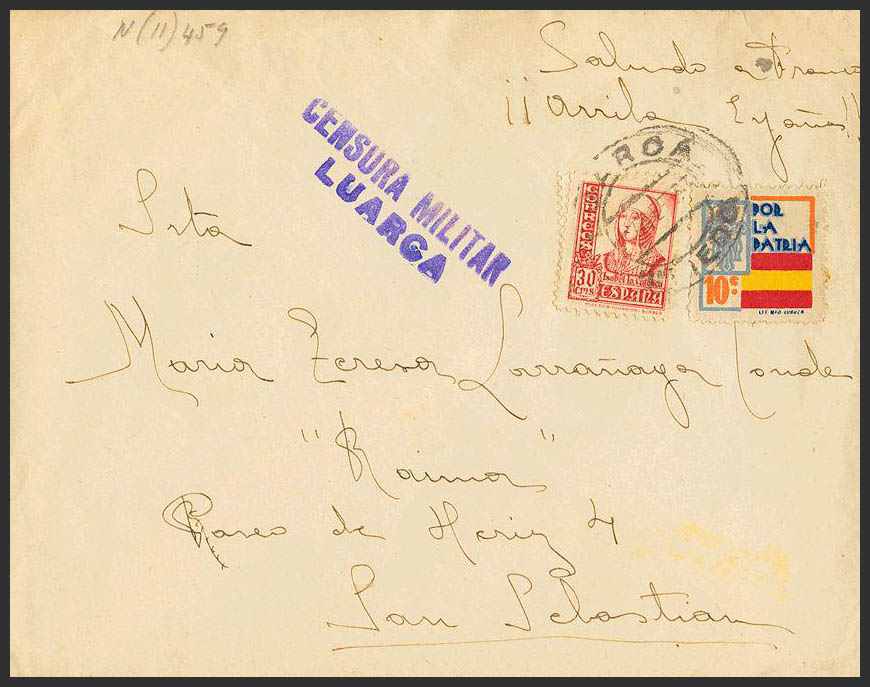 N (11) 459
Saludo a Franco
¡¡ Arriba España!!
CENSURA MILITAR
LUARCA
CORREOS
30 CTS
Isabel la Católica
ESPAÑA
POR
LA
PATRIA
10 c
LIT. MEO-LUARCA
Srta
Maria Teresa Larrañaga Conde
"Raima"
Paseo de Heriz 4
San Sebastian